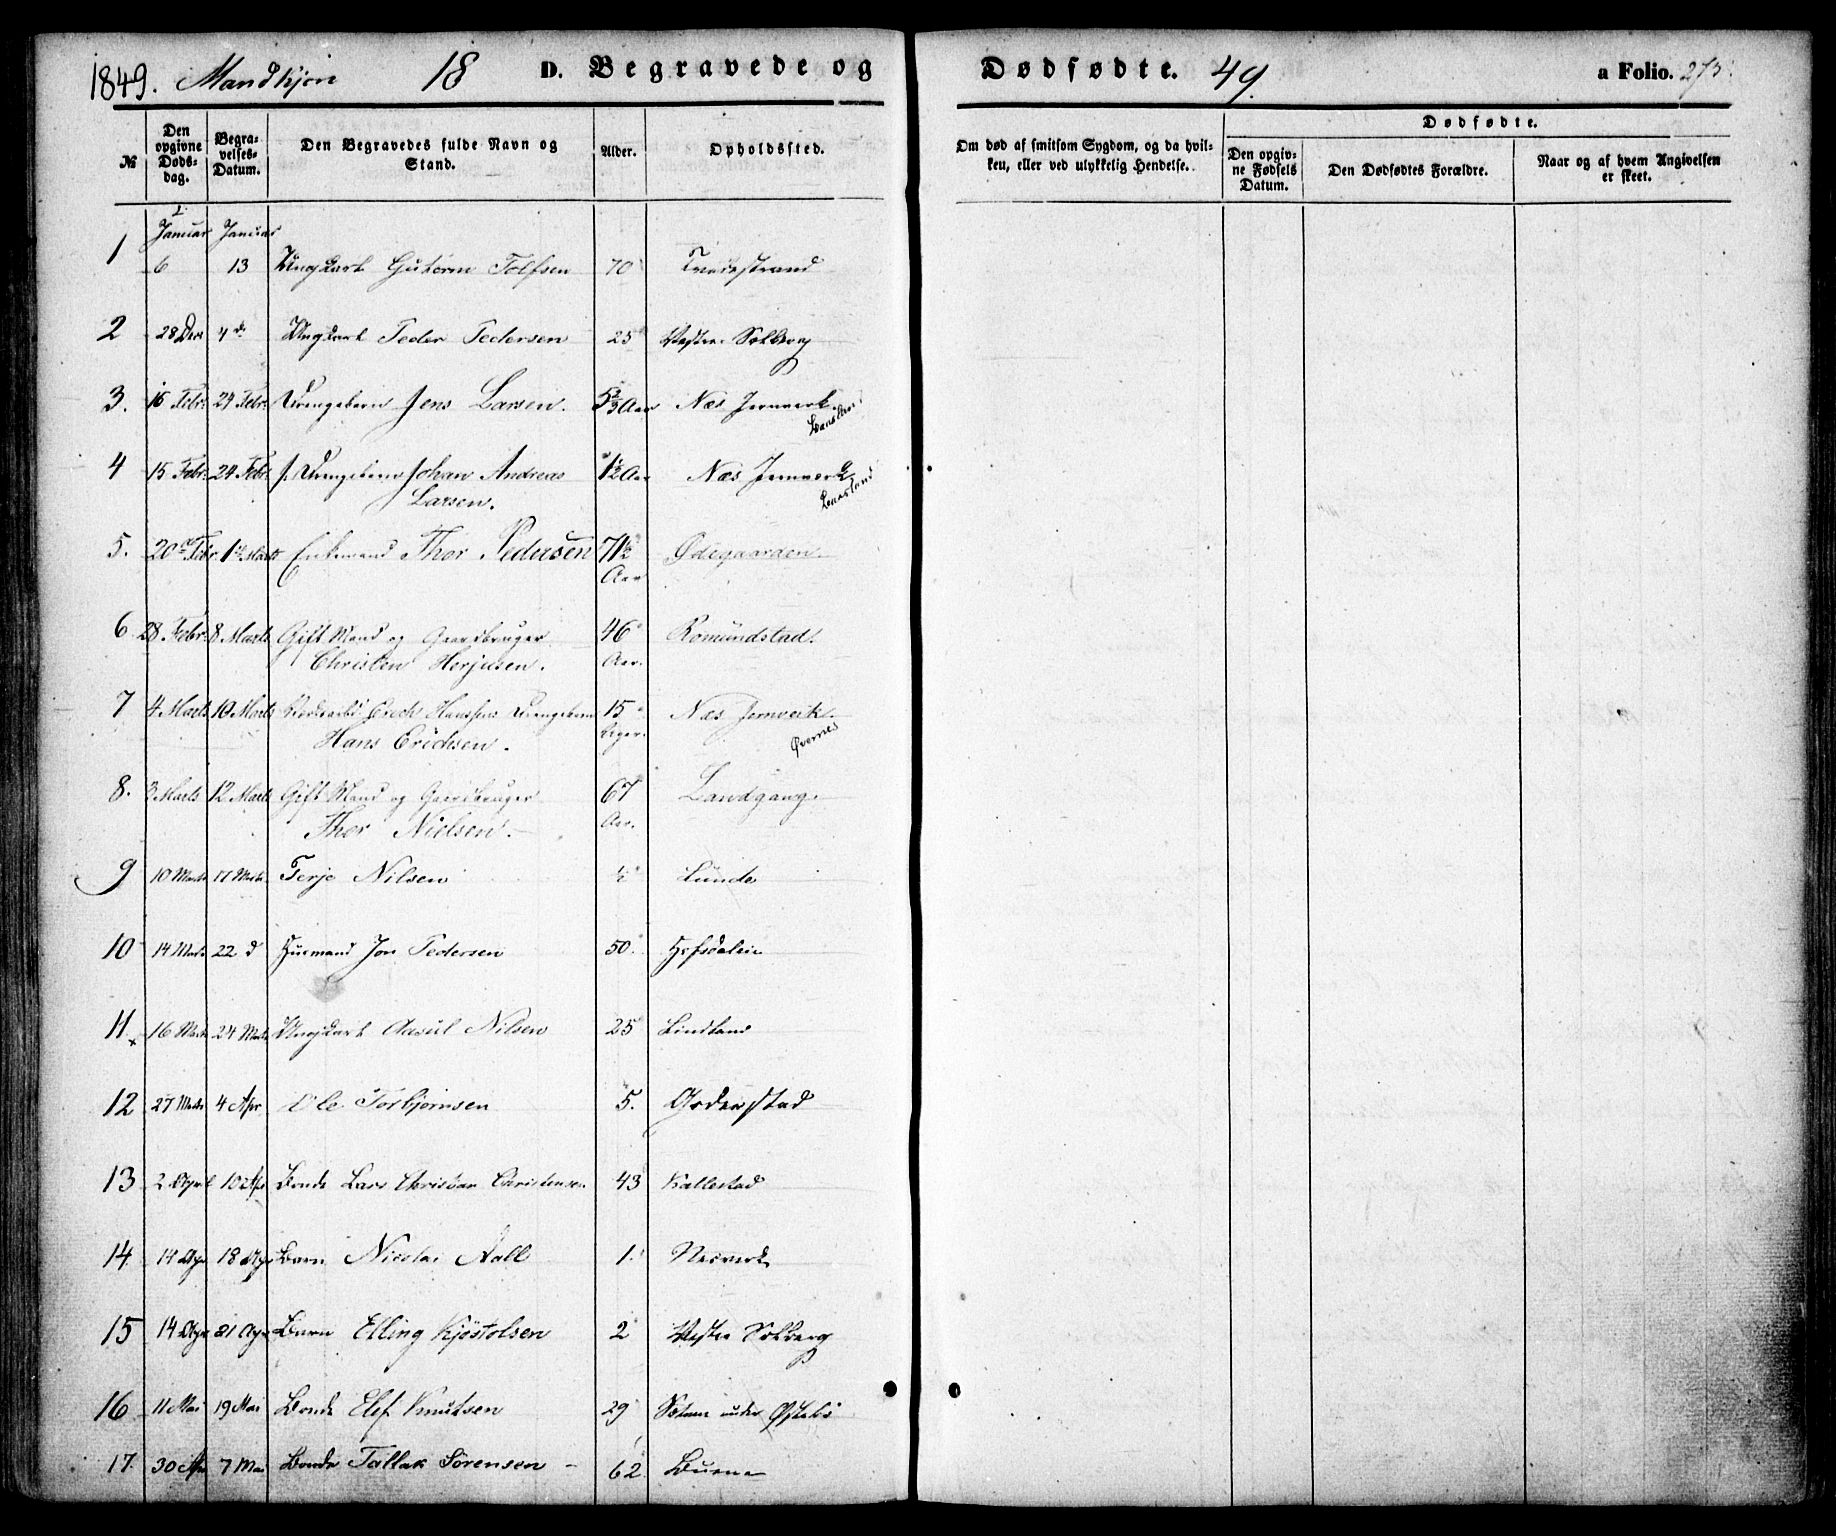 1849. Mandkjøn 18 D. Begravede og Dødfødte. 49. a Folio. 273.
№
Den opgivne Døds-dag.
Begra-velses-Datum.
Den Begravedes fulde Navn og Stand.
Alder.
Opholdssted.
Om død af smitsom Sygdom, og da hvil-ken, eller ved ulykkelig Hendelse.
Dødfødte.
Den opgiv-ne Fødsels Datum.
Den Dødfødtes Forældre.
Naar og af hvem Angivelsen er skeet.
Januar Januar
1 6 13 Ungkarl Guttorm Tolfsen 70 Tvedestrand
2 28 Dec Ungkarl Peder Pedersen 25 Vestre Solberg
3. 16 Febr. 24 Febr. Drengebarn Jens Larsen. Aar Næs Jernverk.
4 15 Febr. 24 Febr. Drengebarn Johan Andreas 1½ Aar Næs Jernverk
Larsen.
5. 20 Febr 1 Marts Enkemand Thor Pedersen 71½ Ødegaarden
Aar
6 28 Febr. 8 Marts Gift Mand og Gaardbruger 46 Romundstad.
Christen Herjusen. Aar.
7 4 Marts 10 Marts Erich Hanssens Drengebarn 15 Næs Jernverk.
Hans Erichsen. Uger. Øvernes
8. 3 Marts 12 Marts Gift Mand og Gaardbruger 67 Landgang.
Thor Nielsen. Aar.
9 10 Marts 17 Marts Terje Nilsen ½ Lunde
10 14 Marts 22 d Husmand Jon Pedersen 50. Hefsdalen
11 16 Marts 24 Marts Ungkarl Aasul Nilsen 25 Lindland
12 27 Marts 4 Apr Ole Torbjørnsen 5.
13 2 April 10 Apr Bonde Lars Christian Christensen 43 Kallestad
14 14 Apr 18 Apr Barn Nicolai Aall 1. Næsverk
15 14 Apr 21 Apr Barn Elling Kjøstolsen 2 Vestre Solberg
16 11 Mai 19 Mai Bonde Elef Knutsen 29 under Østebø
17. 30 Apr 7 Mai Bonde Tallak Sørensen 62.